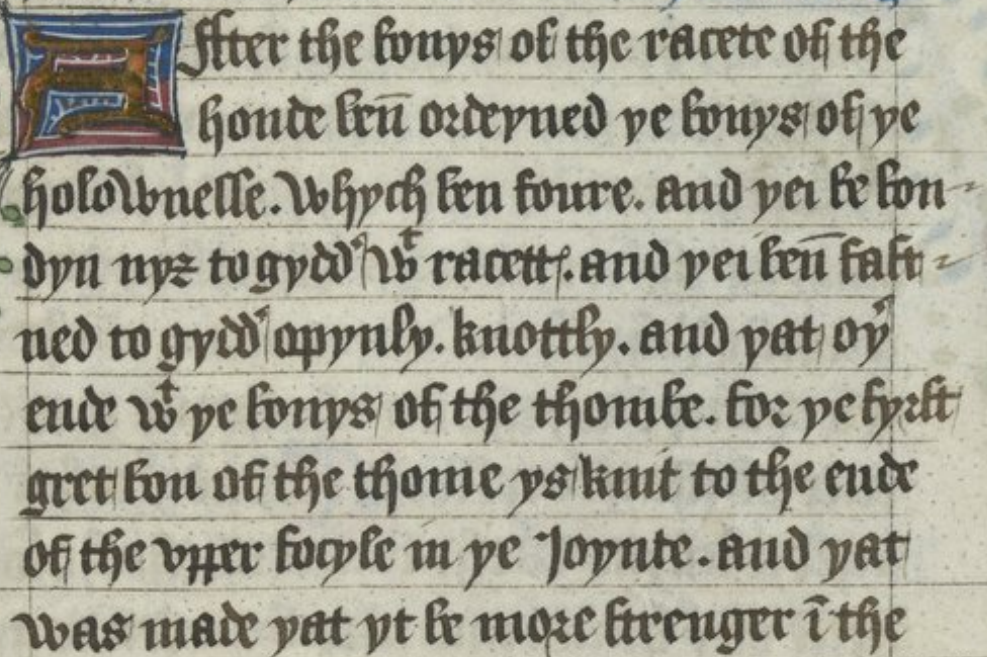 Affter the bonys of the racete of the
honde ben̄ ordeyned ye bonys of ye
holownesse. whych ben foure. and yei be bon-
dyn nyȝ to gydd' wᵗ racett. and yei ben̄ fast-
ned to gydd' opynly. knottly. and yat oy'
ende wᵗ ye bonys of the thombe. for ye fyrst
gret bon of the thome ys knit to the ende
of the vpper focyle in ye Joynte. and yat
was made yat yt be more strenger ī the